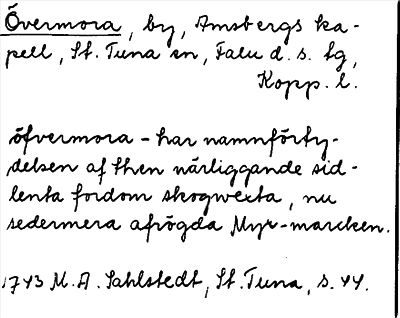 Övermora, by, Amsbergs ka-
pell, St. Tuna sn, Falu d. s. tg,
Kopp. l.
öfvermora - har namnförty-
delsen af then närliggande sid-
lenta fordom skogwexta, nu
sedermera afrögda Myr-marcken.
1743 M. A. Sahlstedt, St. Tuna, s. 44.